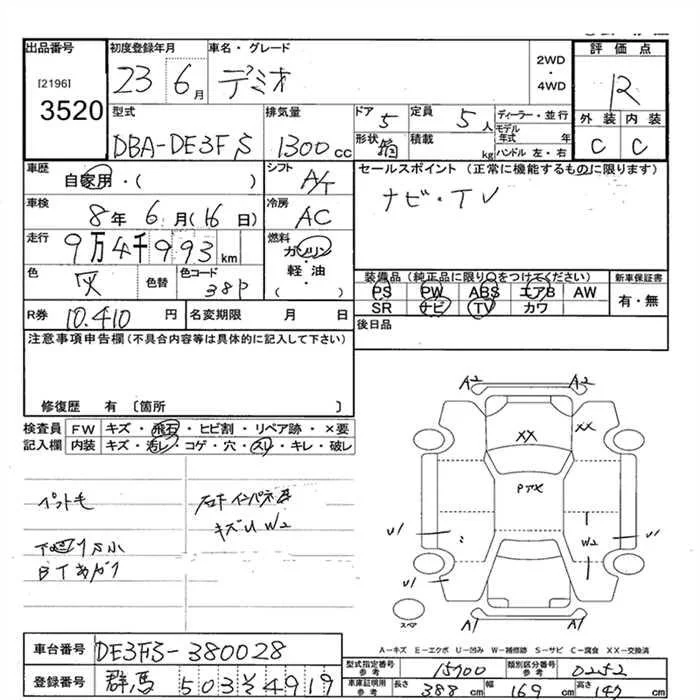 出品番号 初度登録年月 車名・グレード 評価点
[2196] 23 6月 デミオ 2WD・4WD R
3520
型式 排気量 ドア 5 定員 5人 ディーラー・並行 外装 内装
DBA-DE3FS 1300cc 形状 積載 kg モデル年式 年 C C
ハンドル 左・右
車歴 自家用・( ) シフト A/T セールスポイント (正常に機能するものに限ります)
車検 8年 6月(16日) 冷房 AC ナビ・TV
走行 9万4千993km 燃料 ガソリン・軽油・( )
色 灰 色替 色コード 38P
装備品 (純正品に限り○をつけてください) 新車保証書
PS PW ABS エアB AW 有・無
SR ナビ TV カワ
R券 10.410円 名変期限 月 日 後日品
注意事項申告欄(不具合内容等は具体的に記入して下さい)
修復歴 有 [箇所 ]
検査員記入欄 FW キズ・飛石・ヒビ割・リペア跡・×要
内装 キズ・汚レ・コゲ・穴・スレ・キレ・破レ
ペット毛
キズU W2
A2 A2
XX XX
U1 W2 U1
U1
A1 A1
スペア
A-キズ E-エクボ U-凹み W-補修跡 S-サビ C-腐食 XX-交換済
車台番号 DE3FS-380028
型式指定番号 参考 15700 類別区分番号 参考 0252
登録番号 群馬 503 そ 4919
車庫証明用 参考 長さ 388cm 幅 169cm 高さ 149cm